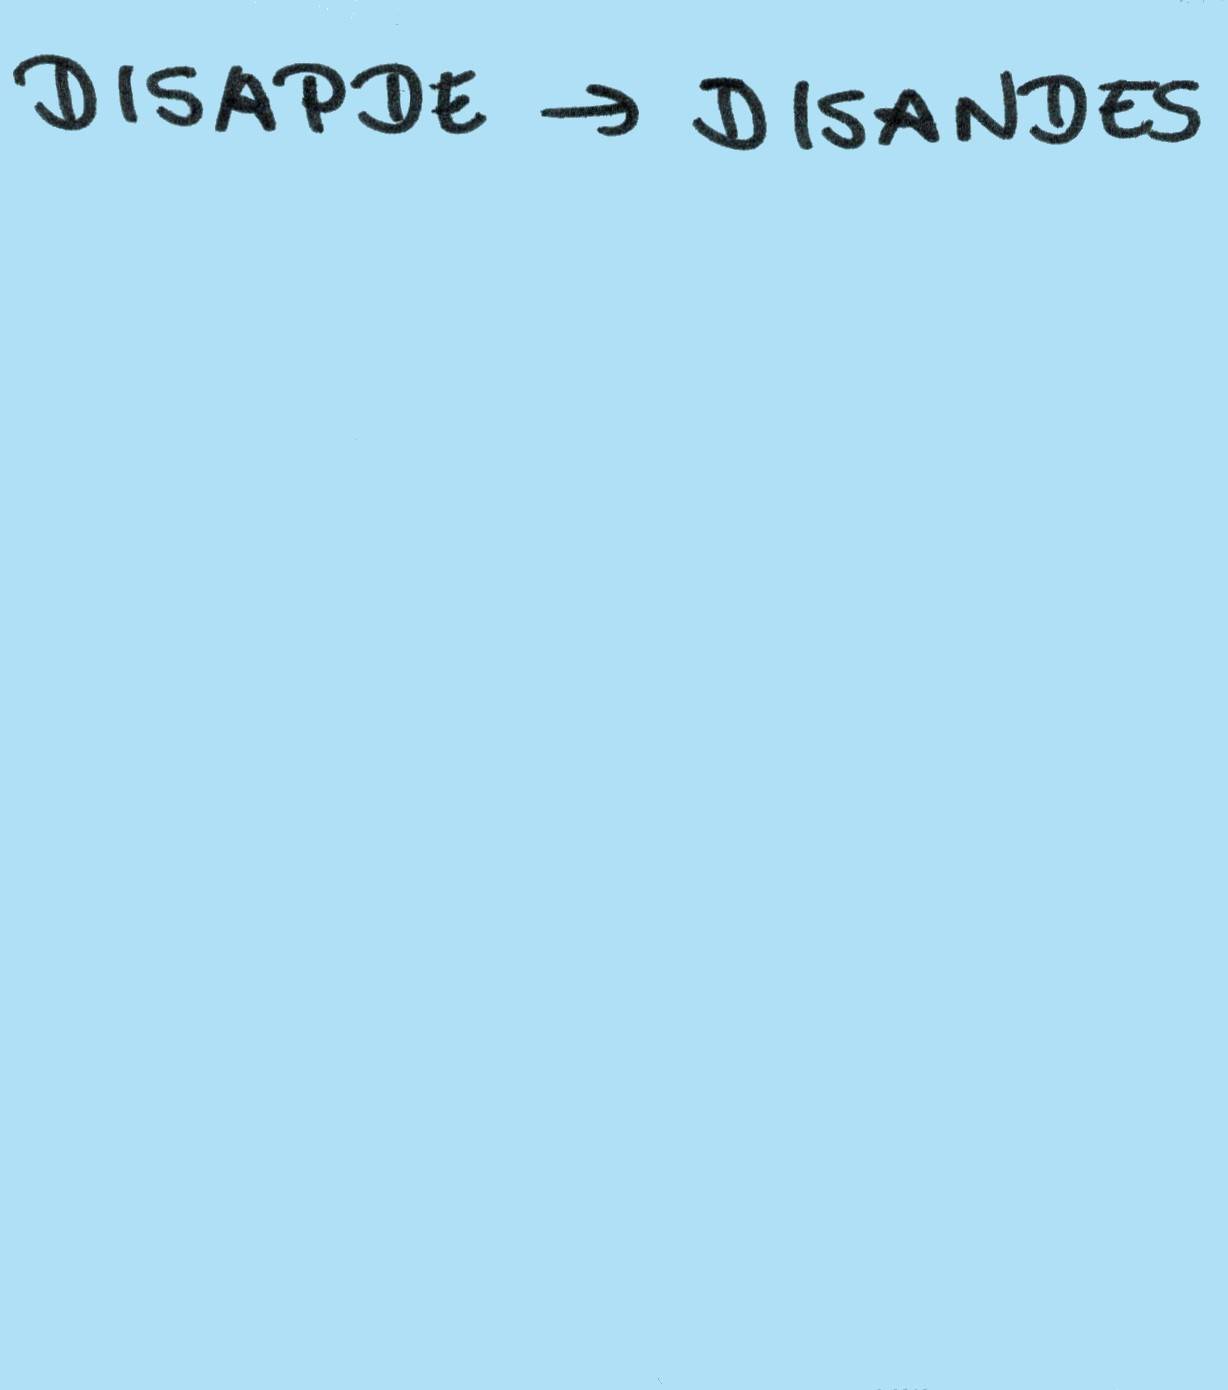 DISAPDE → DISANDES